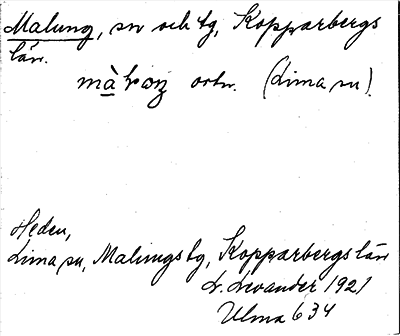 Malung, sn och tg, Kopparbergs
län.
ortn. (Lima sn).
Heden,
Lima sn, Malungs tg, Kopparbergs län
L. Levander 1921
Ulma 634